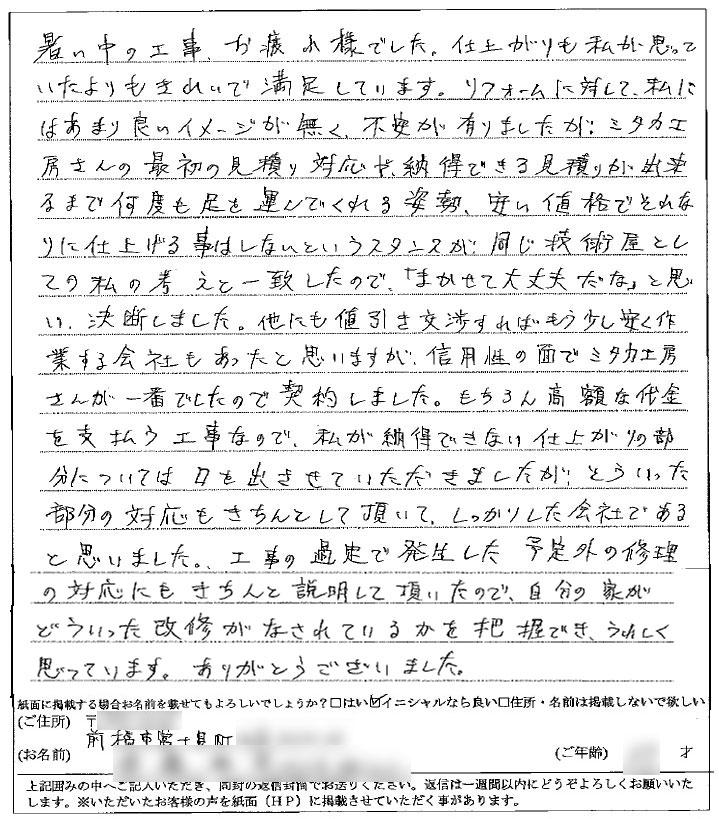 暑い中の工事、お疲れ様でした。仕上がりも私が思って
いたよりもきれいで満足しています。リフォームに対して、私に
はあまり良いイメージが無く、不安が有りましたが、ミタカ工
房さんの最初の見積り対応や、納得できる見積りが出来
るまで何度も足を運んでくれる姿勢、安い値格でそれな
りに仕上げる事はしないというスタンスが、同じ技術屋とし
ての私の考えと一致したので、「まかせて大丈夫だな」と思
い、決断しました。他にも値引き交渉すればもう少し安く作
業する会社もあったと思いますが、信用性の面でミタカ工房
さんが一番でしたので契約しました。もちろん高額な代金
を支払う工事なので、私が納得できない仕上がりの部
分については口を出させていただきましたが、そういった
部分の対応もきちんとして頂いて、しっかりした会社である
と思いました。、工事の過定で発生した予定外の修理
の対応にもきちんと説明して頂いたので、自分の家が
どういった改修がなされているかを把握でき、うれしく
思っています。ありがとうございました。
紙面に掲載する場合お名前を載せてもよろしいでしょうか?□はい☑イニシャルなら良い□住所・名前は掲載しないで欲しい
(ご住所) 〒
前橋市富士見町
(お名前) (ご年齢) 才
上記囲みの中へご記入いただき、同封の返信封筒でお送りください。返信は一週間以内にどうぞよろしくお願いいた
します。※いただいたお客様の声を紙面(HP)に掲載させていただく事があります。